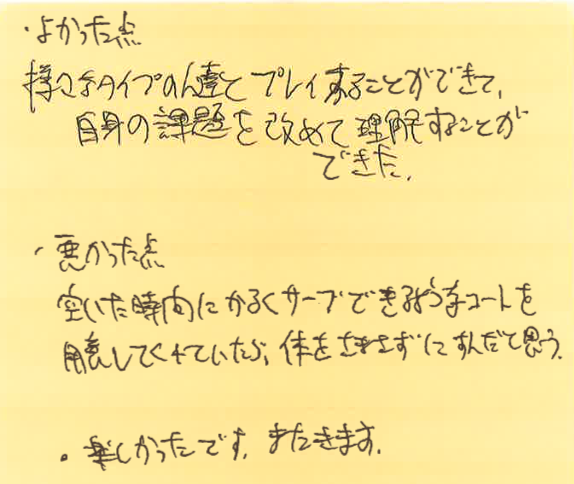 ・よかった点
様々なタイプの人達とプレイすることができて、
自身の課題を改めて理解することが
できた。
・悪かった点
空いた時間にかるくサーブできるようなコートを
用意してくれていたら、体をさまさずにすんだと思う。
・楽しかったです。またきます。